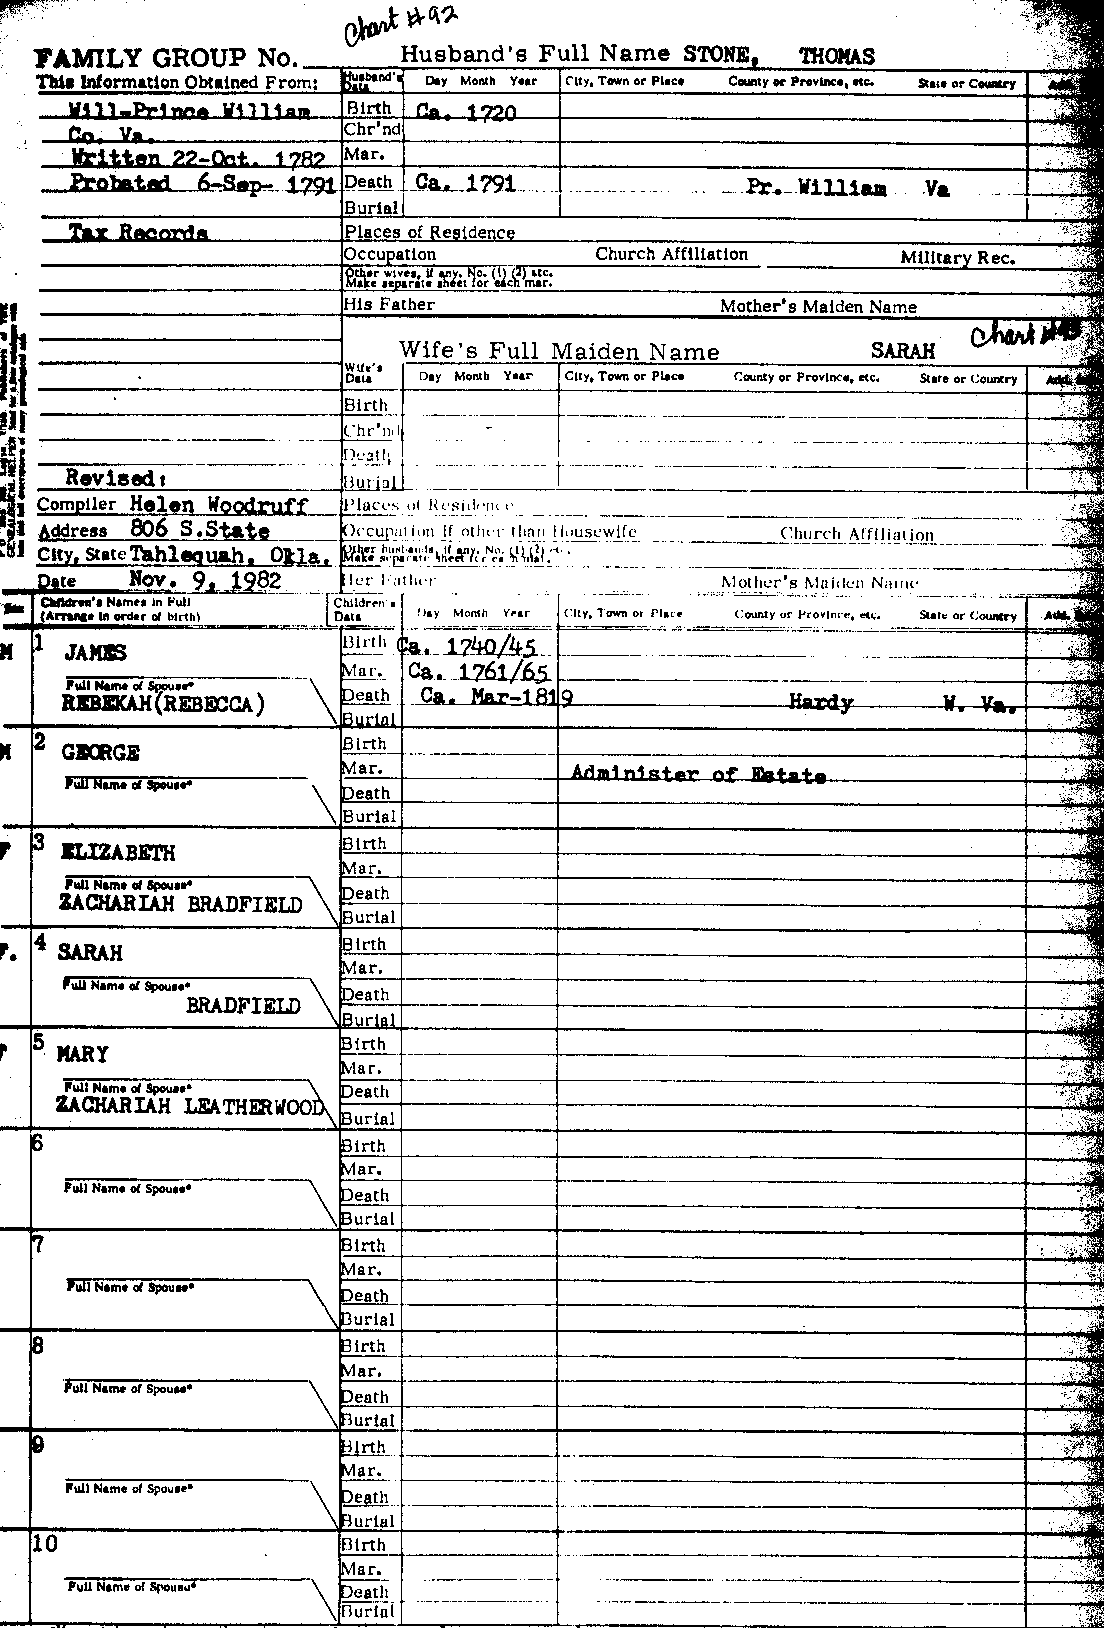 Chart #92
FAMILY GROUP No. Husband's Full Name STONE, THOMAS
This Information Obtained From: Husband's Data Day Month Year City, Town or Place County or Province, etc. State or Country
Will-Prince William Birth Ca. 1720
Co. Va. Chr'nd
Written 22-Oct. 1782 Mar.
Probated 6-Sep- 1791 Death Ca. 1791 Pr. William Va
Burial
Tax Records Places of Residence
Occupation Church Affiliation Military Rec.
Other wives, if any. No. (1) (2) etc.
Make separate sheet for each mar.
His Father Mother's Maiden Name
Chart #93
Wife's Full Maiden Name SARAH
Wife's Data Day Month Year City, Town or Place County or Province, etc. State or Country
Birth
Chr'nd
Death
Revised: Burial
Compiler Helen Woodruff Places of Residence
Address 806 S.State Occupation if other than Housewife Church Affiliation
City, State Tahlequah, Okla. Other husbands, if any. No. (1) (2) etc.
Make separate sheet for each mar.
Date Nov. 9, 1982 Her Father Mother's Maiden Name
Children's Names in Full
(Arrange in order of birth) Children's Data Day Month Year City, Town or Place County or Province, etc. State or Country
M 1 JAMES Birth Ca. 1740/45
Mar. Ca. 1761/65
Full Name of Spouse* Death Ca. Mar-1819 Hardy W. Va.
REBEKAH(REBECCA) Burial
M 2 GEORGE Birth
Mar. Administer of Estate
Full Name of Spouse* Death
Burial
F 3 ELIZABETH Birth
Mar.
Full Name of Spouse* Death
ZACHARIAH BRADFIELD Burial
F. 4 SARAH Birth
Mar.
Full Name of Spouse* Death
BRADFIELD Burial
F 5 MARY Birth
Mar.
Full Name of Spouse* Death
ZACHARIAH LEATHERWOOD Burial
6 Birth
Mar.
Full Name of Spouse* Death
Burial
7 Birth
Mar.
Full Name of Spouse* Death
Burial
8 Birth
Mar.
Full Name of Spouse* Death
Burial
9 Birth
Mar.
Full Name of Spouse* Death
Burial
10 Birth
Mar.
Full Name of Spouse* Death
Burial